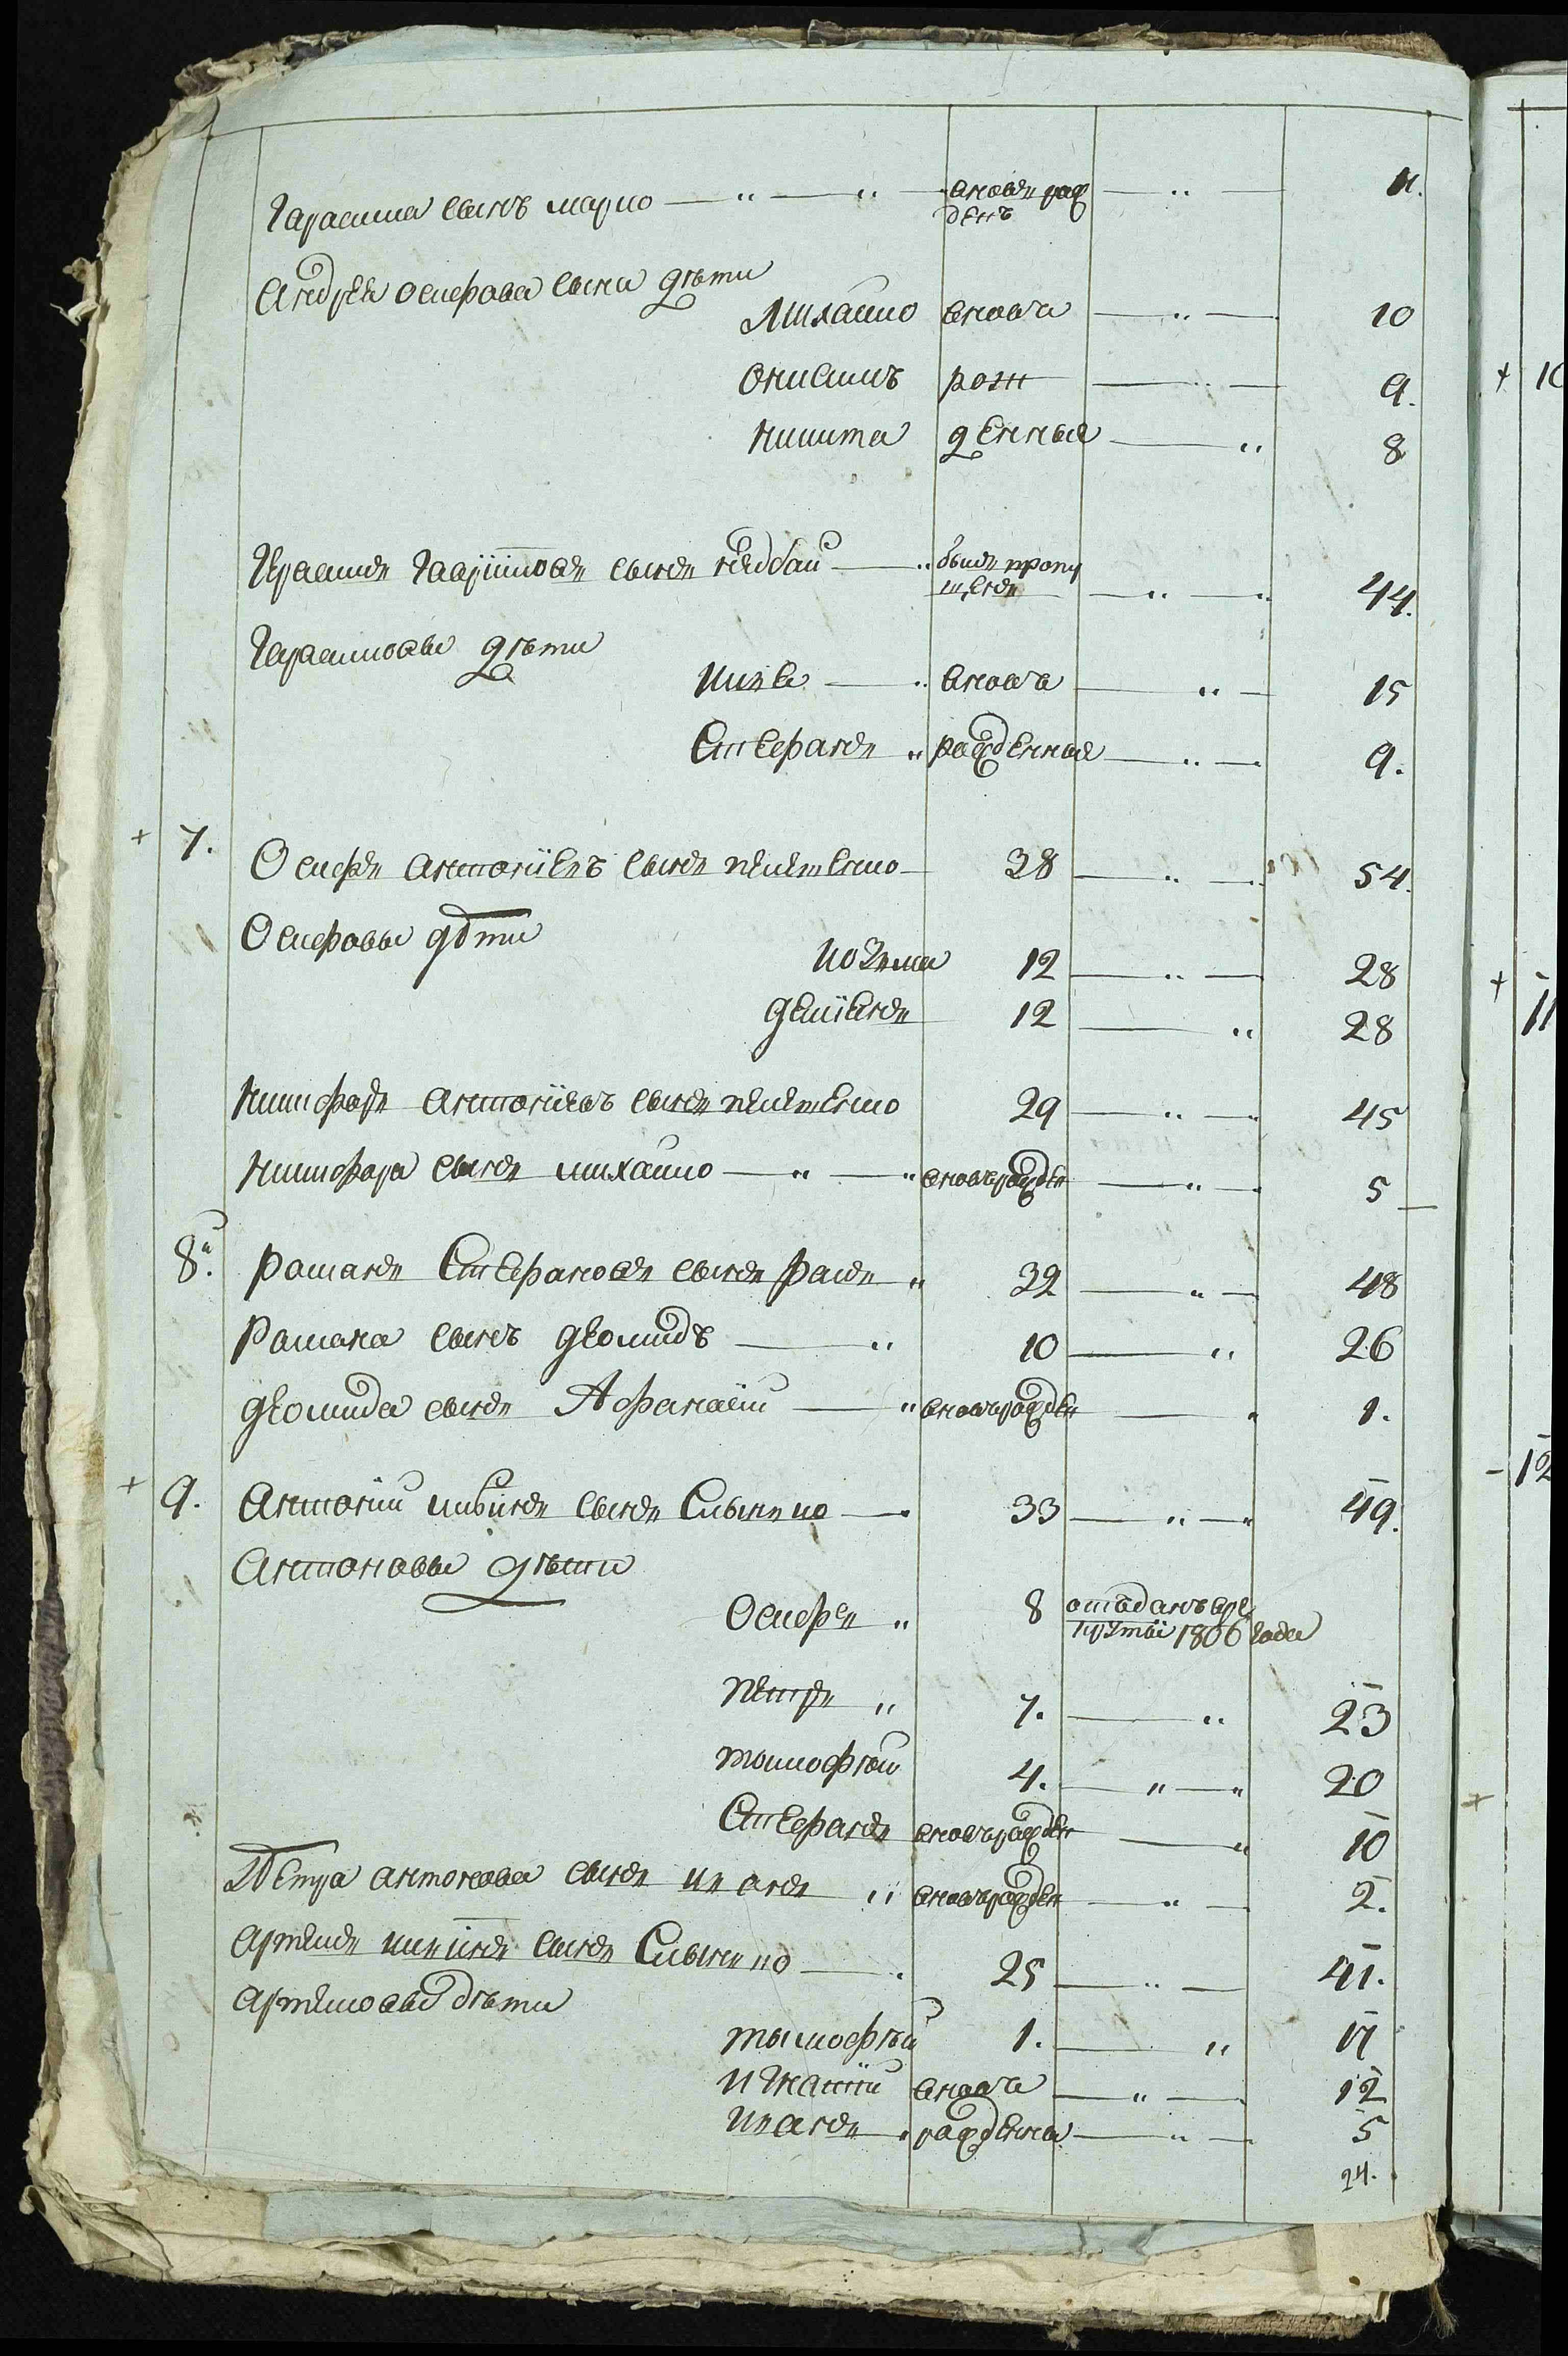 Гарасима сынъ марко — " — " — вновъ рож — " — 11.
денъ
Андрея осифова сына дѣти
Михаило вновъ — " — 10
Онисимъ рож — " — 9.
Никита денные — " 8
Герасимъ Гавриловъ сынъ недбай — " былъ пропу
щенъ — " — " 44.
Герасимовы дѣти
Илья — " вновъ — " — 15
Стефанъ " рожденные — " — 9.
+ 7. Осифъ антоніевъ сынъ пелипенко — 38 — " — 54.
Осифовы дѣти
козьма 12 — " — 28
демїянъ 12 — " 28
Никифоръ антоніевъ сынъ пелипенко 29 — " — 45
Никифора сынъ михаило — " — " вновърожден — " — 5
8. Романъ Стефановъ сынъ " 32 — " — 48
Романа сынъ деомидъ — " 10 — " 26
деомида сынъ Афанасїи — " вновърожден — " 1.
+ 9. Антоніи сынъ 33 — " — " 49.
Антоновы дѣти
Осифъ " 8 отъданъ вре
круты 1806 года
петръ " 7. — " 23
тимофѣй 4. — " — " 20
Стефанъ вновърожден — " 10
Петра антонова сынъ иванъ " вновърожден — " — 2.
артемъ сынъ — . 25 — " — 41.
артемовы дѣти
тымофѣй 1. — " 17
Игнатїи вновъ — " — 12
иванъ — рождены — " — 5
24.
+ 10
+ 11
- 12
+